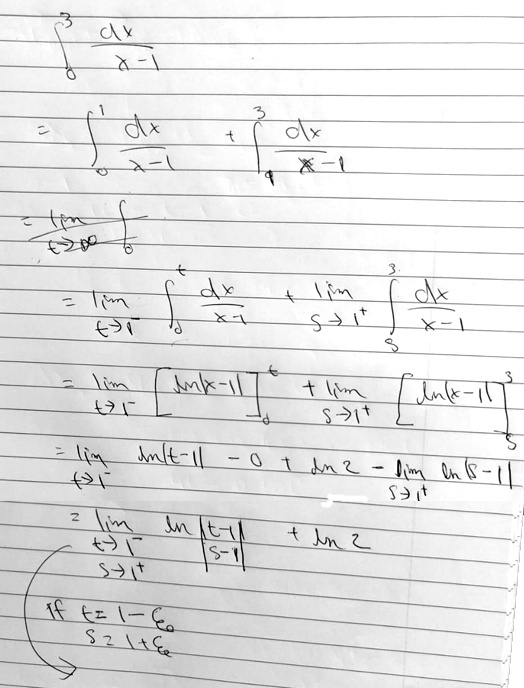 ∫₀³ dx/(x-1)
= ∫₀¹ dx/(x-1) + ∫₁³ dx/(x-1)
= lim t→∞ ∫₀
= lim t→1⁻ ∫₀ᵗ dx/(x-1) + lim s→1⁺ ∫ₛ³ dx/(x-1)
= lim t→1⁻ [ln|x-1|]₀ᵗ + lim s→1⁺ [ln|x-1|]ₛ³
= lim t→1⁻ ln|t-1| - 0 + ln 2 - lim s→1⁺ ln|s-1|
= lim t→1⁻ s→1⁺ ln |t-1|/|s-1| + ln 2
If t = 1 - ε₀
s = 1 + ε₀